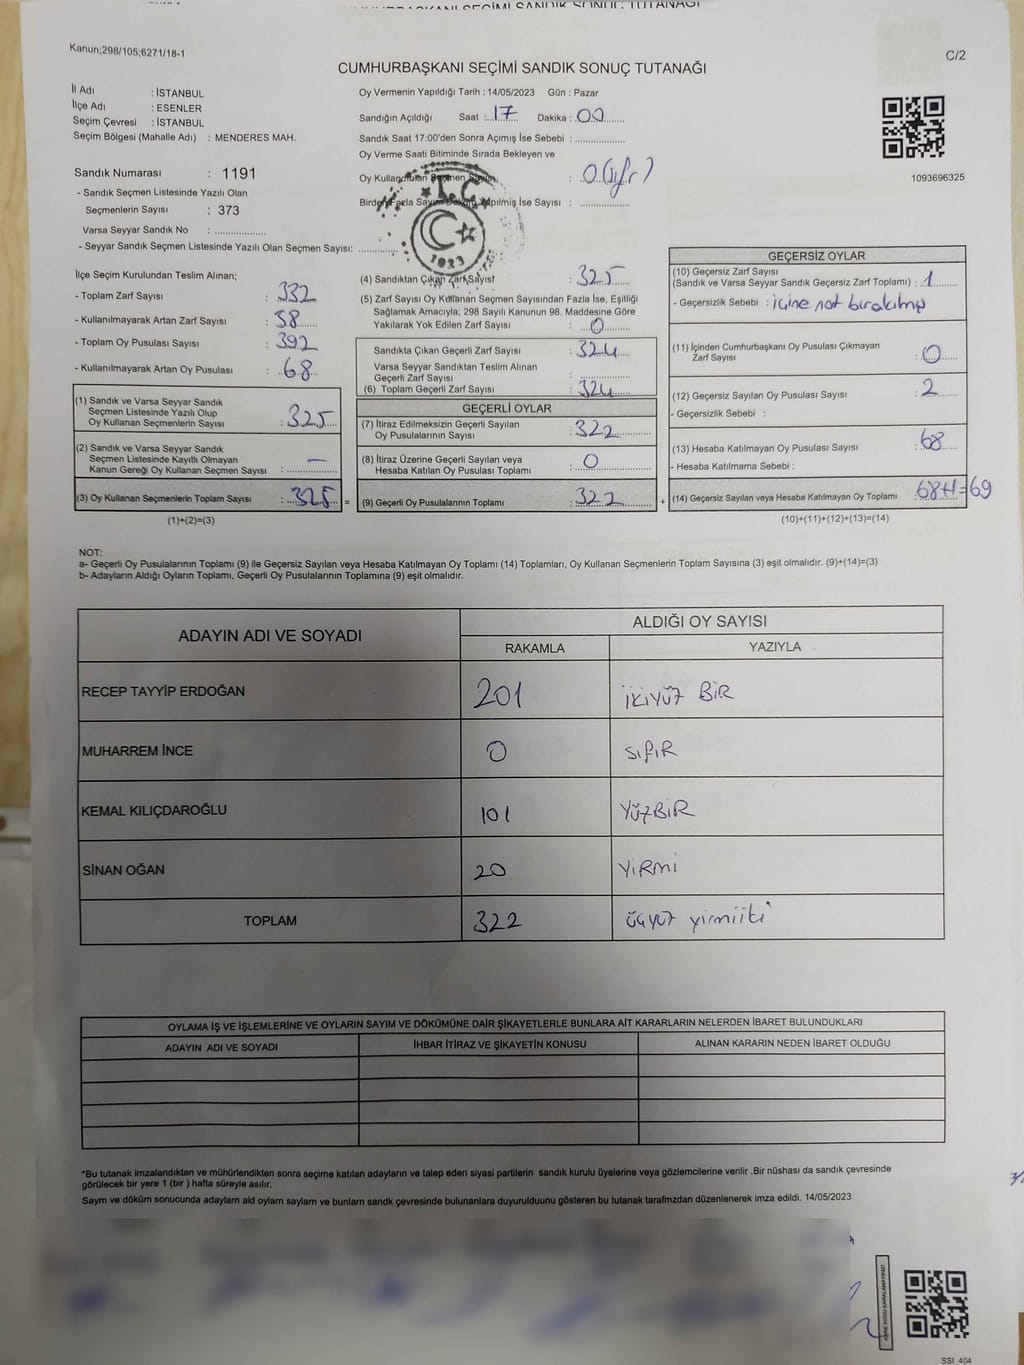 Kanun;298/105;6271/18-1
C/2
CUMHURBAŞKANI SEÇİMİ SANDIK SONUÇ TUTANAĞI
İl Adı : İSTANBUL
İlçe Adı : ESENLER
Seçim Çevresi : İSTANBUL
Seçim Bölgesi (Mahalle Adı) : MENDERES MAH.
Sandık Numarası : 1191
- Sandık Seçmen Listesinde Yazılı Olan
Seçmenlerin Sayısı : 373
Varsa Seyyar Sandık No :
- Seyyar Sandık Seçmen Listesinde Yazılı Olan Seçmen Sayısı:
Oy Vermenin Yapıldığı Tarih : 14/05/2023 Gün : Pazar
Sandığın Açıldığı Saat : 17 Dakika : 00
Sandık Saat 17:00'den Sonra Açımış İse Sebebi :
Oy Verme Saati Bitiminde Sırada Bekleyen ve
Oy Kullandırılan Seçmen Sayısı : 0 (sıfır)
Birden Fazla Sayım Döküm Yapılmış İse Sayısı :
T.C.
1923
1093696325
İlçe Seçim Kurulundan Teslim Alınan;
- Toplam Zarf Sayısı : 332
- Kullanılmayarak Artan Zarf Sayısı : 58
- Toplam Oy Pusulası Sayısı : 392
- Kullanılmayarak Artan Oy Pusulası : 68
(1) Sandık ve Varsa Seyyar Sandık
Seçmen Listesinde Yazılı Olup
Oy Kullanan Seçmenlerin Sayısı : 325
(2) Sandık ve Varsa Seyyar Sandık
Seçmen Listesinde Kayıtlı Olmayan
Kanun Gereği Oy Kullanan Seçmen Sayısı : —
(3) Oy Kullanan Seçmenlerin Toplam Sayısı : 325 =
(1)+(2)=(3)
(4) Sandıktan Çıkan Zarf Sayısı : 325
(5) Zarf Sayısı Oy Kullanan Seçmen Sayısından Fazla İse, Eşitliği
Sağlamak Amacıyla; 298 Sayılı Kanunun 98. Maddesine Göre
Yakılarak Yok Edilen Zarf Sayısı : 0
Sandıkta Çıkan Geçerli Zarf Sayısı : 324
Varsa Seyyar Sandıktan Teslim Alınan
Geçerli Zarf Sayısı :
(6) Toplam Geçerli Zarf Sayısı : 324
GEÇERLİ OYLAR
(7) İtiraz Edilmeksizin Geçerli Sayılan
Oy Pusulalarının Sayısı : 322
(8) İtiraz Üzerine Geçerli Sayılan veya
Hesaba Katılan Oy Pusulası Toplamı : 0
(9) Geçerli Oy Pusulalarının Toplamı : 322 +
GEÇERSİZ OYLAR
(10) Geçersiz Zarf Sayısı
(Sandık ve Varsa Seyyar Sandık Geçersiz Zarf Toplamı) : 1
- Geçersizlik Sebebi : içine not bırakılmış
(11) İçinden Cumhurbaşkanı Oy Pusulası Çıkmayan
Zarf Sayısı : 0
(12) Geçersiz Sayılan Oy Pusulası Sayısı : 2
- Geçersizlik Sebebi :
(13) Hesaba Katılmayan Oy Pusulası Sayısı : 68
- Hesaba Katılmama Sebebi :
(14) Geçersiz Sayılan veya Hesaba Katılmayan Oy Toplamı : 68+1=69
(10)+(11)+(12)+(13)=(14)
NOT:
a- Geçerli Oy Pusulalarının Toplamı (9) ile Geçersiz Sayılan veya Hesaba Katılmayan Oy Toplamı (14) Toplamları, Oy Kullanan Seçmenlerin Toplam Sayısına (3) eşit olmalıdır. (9)+(14)=(3)
b- Adayların Aldığı Oyların Toplamı, Geçerli Oy Pusulalarının Toplamına (9) eşit olmalıdır.
ADAYIN ADI VE SOYADI
ALDIĞI OY SAYISI
RAKAMLA YAZIYLA
RECEP TAYYİP ERDOĞAN 201 İKİYÜZ BİR
MUHARREM İNCE 0 SIFIR
KEMAL KILIÇDAROĞLU 101 YÜZBİR
SİNAN OĞAN 20 YİRMİ
TOPLAM 322 üçyüz yirmiiki
OYLAMA İŞ VE İŞLEMLERİNE VE OYLARIN SAYIM VE DÖKÜMÜNE DAİR ŞİKAYETLERLE BUNLARA AİT KARARLARIN NELERDEN İBARET BULUNDUKLARI
ADAYIN ADI VE SOYADI İHBAR İTİRAZ VE ŞİKAYETİN KONUSU ALINAN KARARIN NEDEN İBARET OLDUĞU
*Bu tutanak imzalandıktan ve mühürlendikten sonra seçime katılan adayların ve talep eden siyasi partilerin sandık kurulu üyelerine veya gözlemcilerine verilir .Bir nüshası da sandık çevresinde
görülecek bir yere 1 (bir ) hafta süreyle asılır.
Sayım ve döküm sonucunda adayların ald oyların sayların ve bunların sandk çevresinde bulunanlara duyurulduunu gösteren bu tutanak tarafmzdan düzenlenerek imza edildi. 14/05/2023
SSI_404